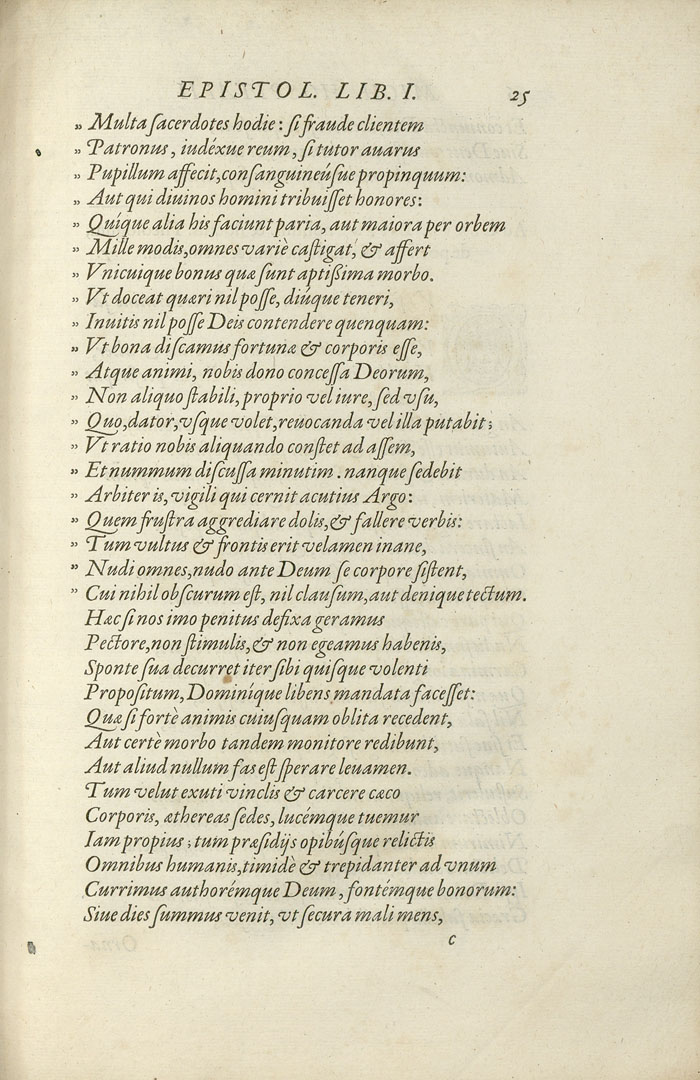 EPISTOL. LIB. I. 25
„ Multa sacerdotes hodie: si fraude clientem
„ Patronus, iudéxue reum, si tutor auarus
„ Pupillum affecit, consanguineúsue propinquum:
„ Aut qui diuinos homini tribuisset honores:
„ Quíque alia his faciunt paria, aut maiora per orbem
„ Mille modis, omnes variè castigat, & affert
„ Vnicuique bonus quæ sunt aptißima morbo.
„ Vt doceat quæri nil posse, diúque teneri,
„ Inuitis nil posse Deis contendere quenquam:
„ Vt bona discamus fortunæ & corporis esse,
„ Atque animi, nobis dono concessa Deorum,
„ Non aliquo stabili, proprio vel iure, sed vsu,
„ Quo, dator, vsque volet, reuocanda vel illa putabit;
„ Vt ratio nobis aliquando constet ad assem,
„ Et nummum discussa minutim. nanque sedebit
„ Arbiter is, vigili qui cernit acutius Argo:
„ Quem frustra aggrediare dolis, & fallere verbis:
„ Tum vultus & frontis erit velamen inane,
„ Nudi omnes, nudo ante Deum se corpore sistent,
„ Cui nihil obscurum est, nil clausum, aut denique tectum.
Hæc si nos imo penitus defixa geramus
Pectore, non stimulis, & non egeamus habenis,
Sponte sua decurret iter sibi quisque volenti
Propositum, Dominíque libens mandata facesset:
Quæ si fortè animis cuiusquam oblita recedent,
Aut certè morbo tandem monitore redibunt,
Aut aliud nullum fas est sperare leuamen.
Tum velut exuti vinclis & carcere cæco
Corporis, æthereas sedes, lucémque tuemur
Iam propius; tum præsidijs opibúsque relictis
Omnibus humanis, timidè & trepidanter ad vnum
Currimus authorémque Deum, fontémque bonorum:
Siue dies summus venit, vt secura mali mens,
c